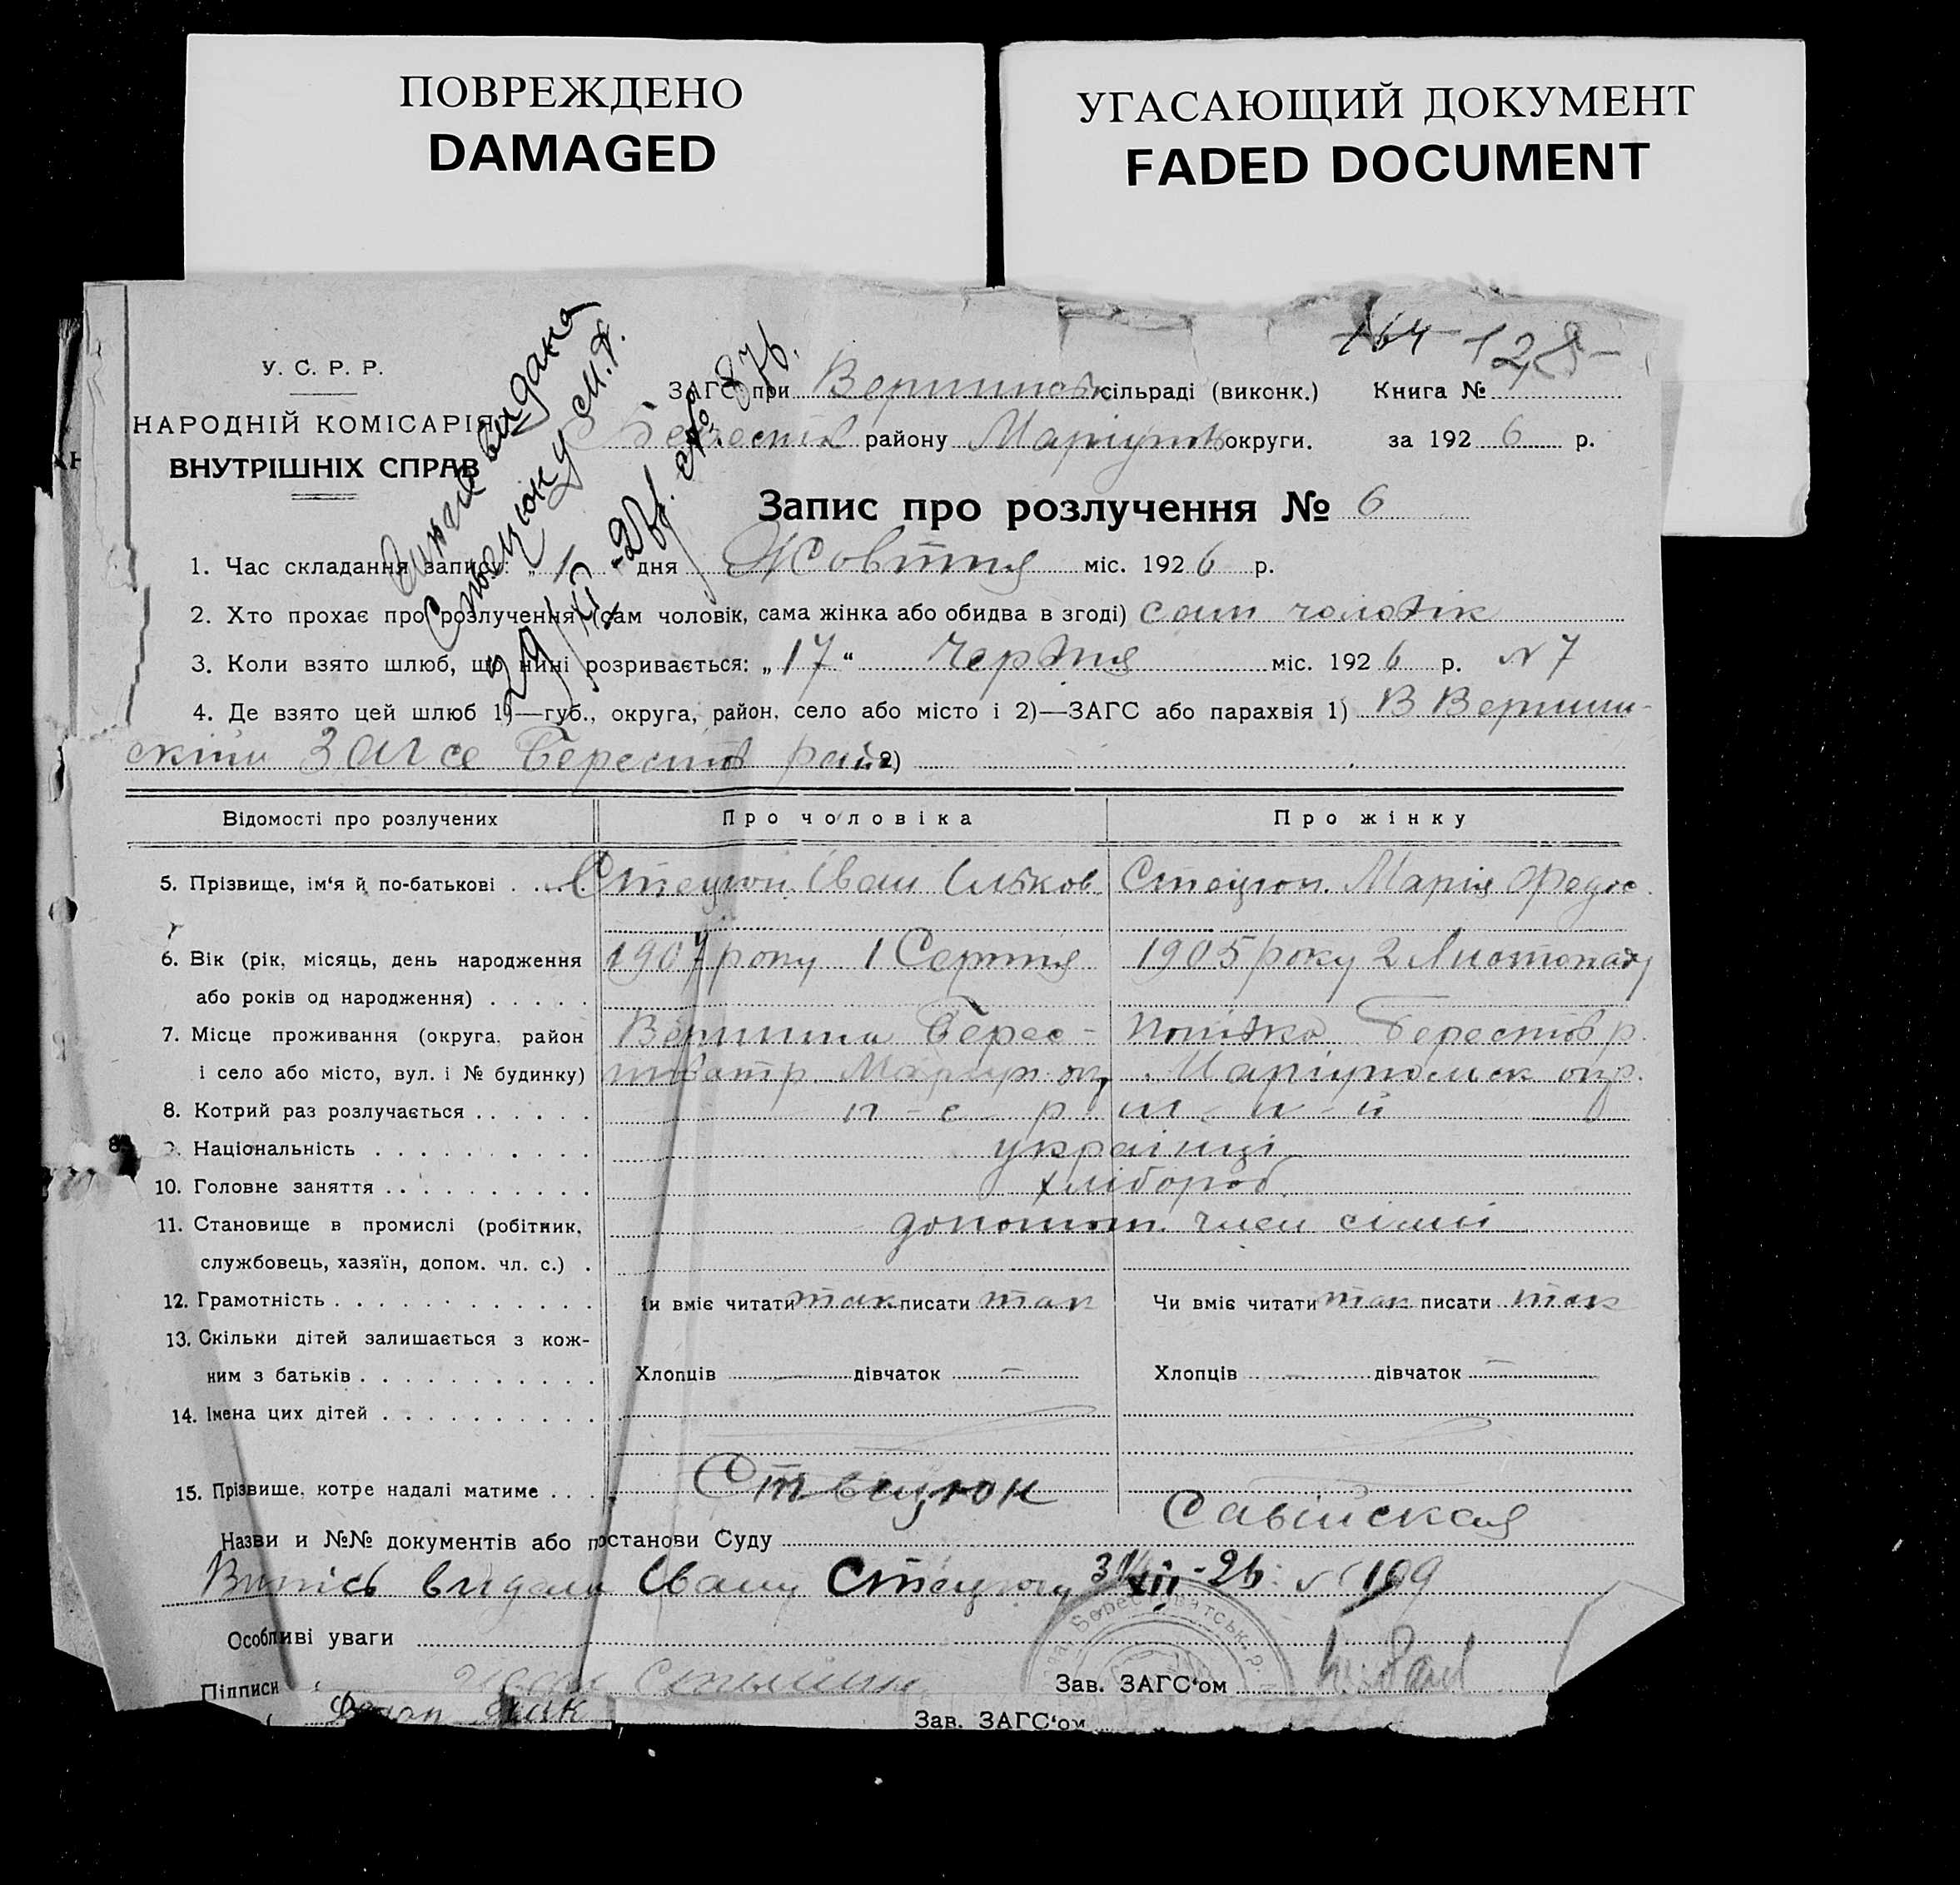 ПОВРЕЖДЕНО
DAMAGED
УГАСАЮЩИЙ ДОКУМЕНТ
FADED DOCUMENT
164 128
У. С. Р. Р.
НАРОДНІЙ КОМІСАРІЯТ
ВНУТРІШНІХ СПРАВ
видана
Стецюку М.Ф.
ЗАГС при Вершинов сільраді (виконк.) Книга №
Берестів району Маріупол округи. за 192 6 р.
Запис про розлучення № 6
1. Час складання запису: „ 1 " дня Жовтня міс. 192 6 р.
2. Хто прохає про розлучення (сам чоловік, сама жінка або обидва в згоді) сам чоловік
3. Коли взято шлюб, що нині розривається: „ 17 “ Червня міс. 192 6 р. N 7
4. Де взято цей шлюб 1)—губ., округа, район, село або місто і 2)—ЗАГС або парахвія 1) В Вершин-
ским Загсе Берестів рай 2)
Відомості про розлучених
Про чоловіка
Про жінку
5. Прізвище, ім‘я й по-батькові Стецюк Іван Стецюк Марія Федос
6. Вік (рік, місяць, день народження 190 року 1 Серпня 1905 року 2 Листопаду
або років од народження)
7. Місце проживання (округа, район Вершина Берес- Попівка Берестов р.
і село або місто, вул. і № будинку) Маріуп ок Маріупольск окр.
8. Котрий раз розлучається п-е-р-ш-и-й
9. Національність українці
10. Головне заняття хлібороб
11. Становище в промислі (робітник, допомаг. член сімї
службовець, хазяїн, допом. чл. с.)
12. Грамотність Чи вміє читати так писати так Чи вміє читати так писати так
13. Скільки дітей залишається з кож-
ним з батьків Хлопців — дівчаток — Хлопців — дівчаток —
14. Імена цих дітей
15. Прізвище, котре надалі матиме Стецюк Савійская
Назви и №№ документів або постанови Суду
Випісь видали Івану Стецюку 31/XII-26 N 109
Особливі уваги
Підписи Зав. ЗАГС‘ом
Зав. ЗАГС‘ом